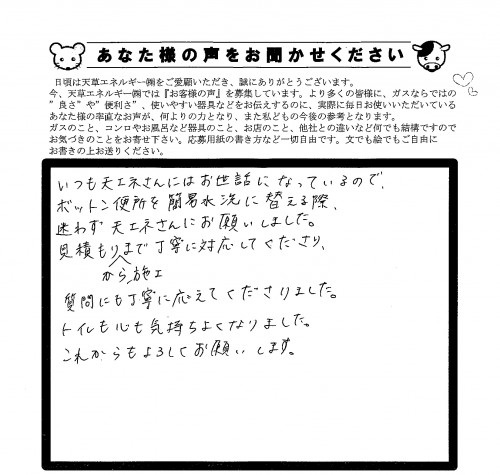 あなた様の声をお聞かせください
日頃は天草エネルギー㈱をご愛顧いただき、誠にありがとうございます。
今、天草エネルギー㈱では『お客様の声』を募集しています。より多くの皆様に、ガスならではの
”良さ”や”便利さ”、使いやすい器具などをお伝えするのに、実際に毎日お使いいただいている
あなた様の率直なお声が、何よりの力となり、また私どもの今後の参考となります。
ガスのこと、コンロやお風呂など器具のこと、お店のこと、他社との違いなど何でも結構ですので
お気づきのことをお寄せ下さい。応募用紙の書き方など一切自由です。文でも絵でもご自由に
お書きの上お送りください。
いつも天エネさんにはお世話になっているので、
ボットン便所を簡易水洗に替える際、
迷わず天エネさんにお願いしました。
見積もりまで丁寧に対応してくださり、
から施工
質問にも丁寧に応えてくださりました。
トイレも心も気持ちよくなりました。
これからもよろしくお願いします。